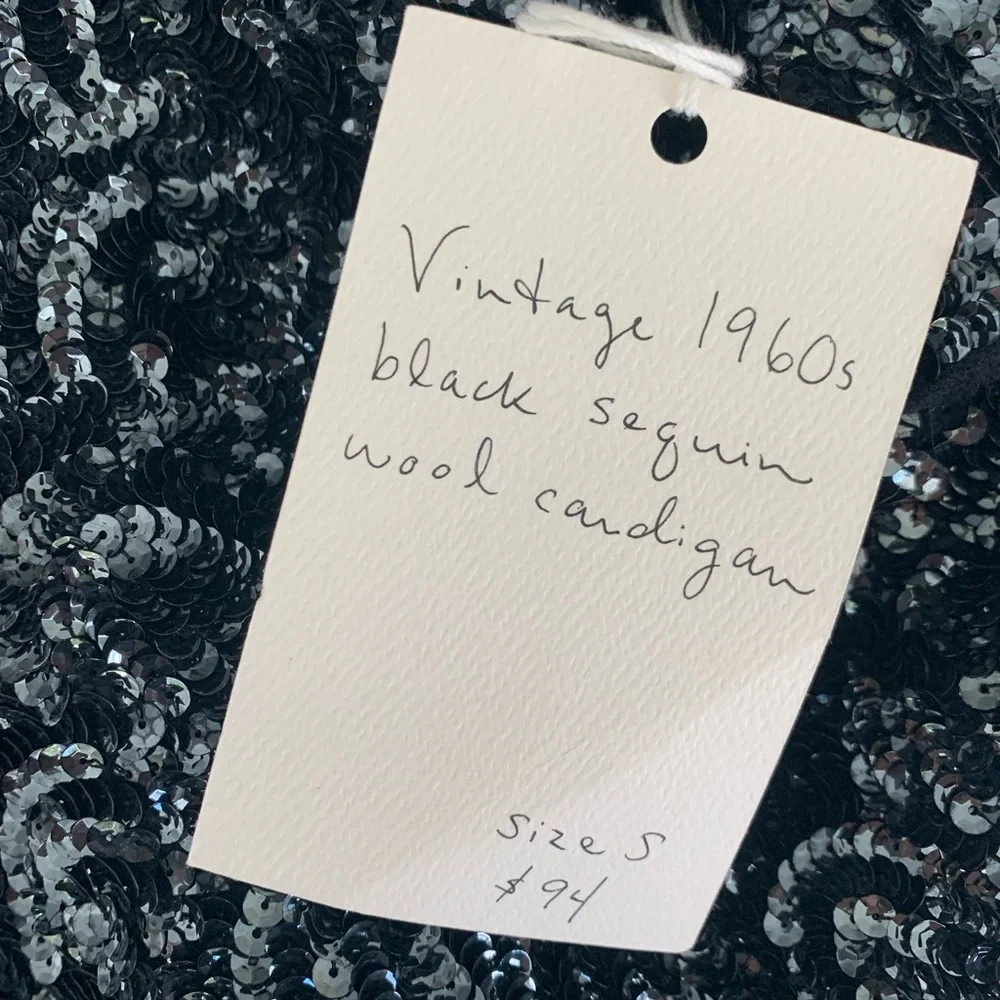 Vintage 1960s
black sequin
wool cardigan
size S
$94